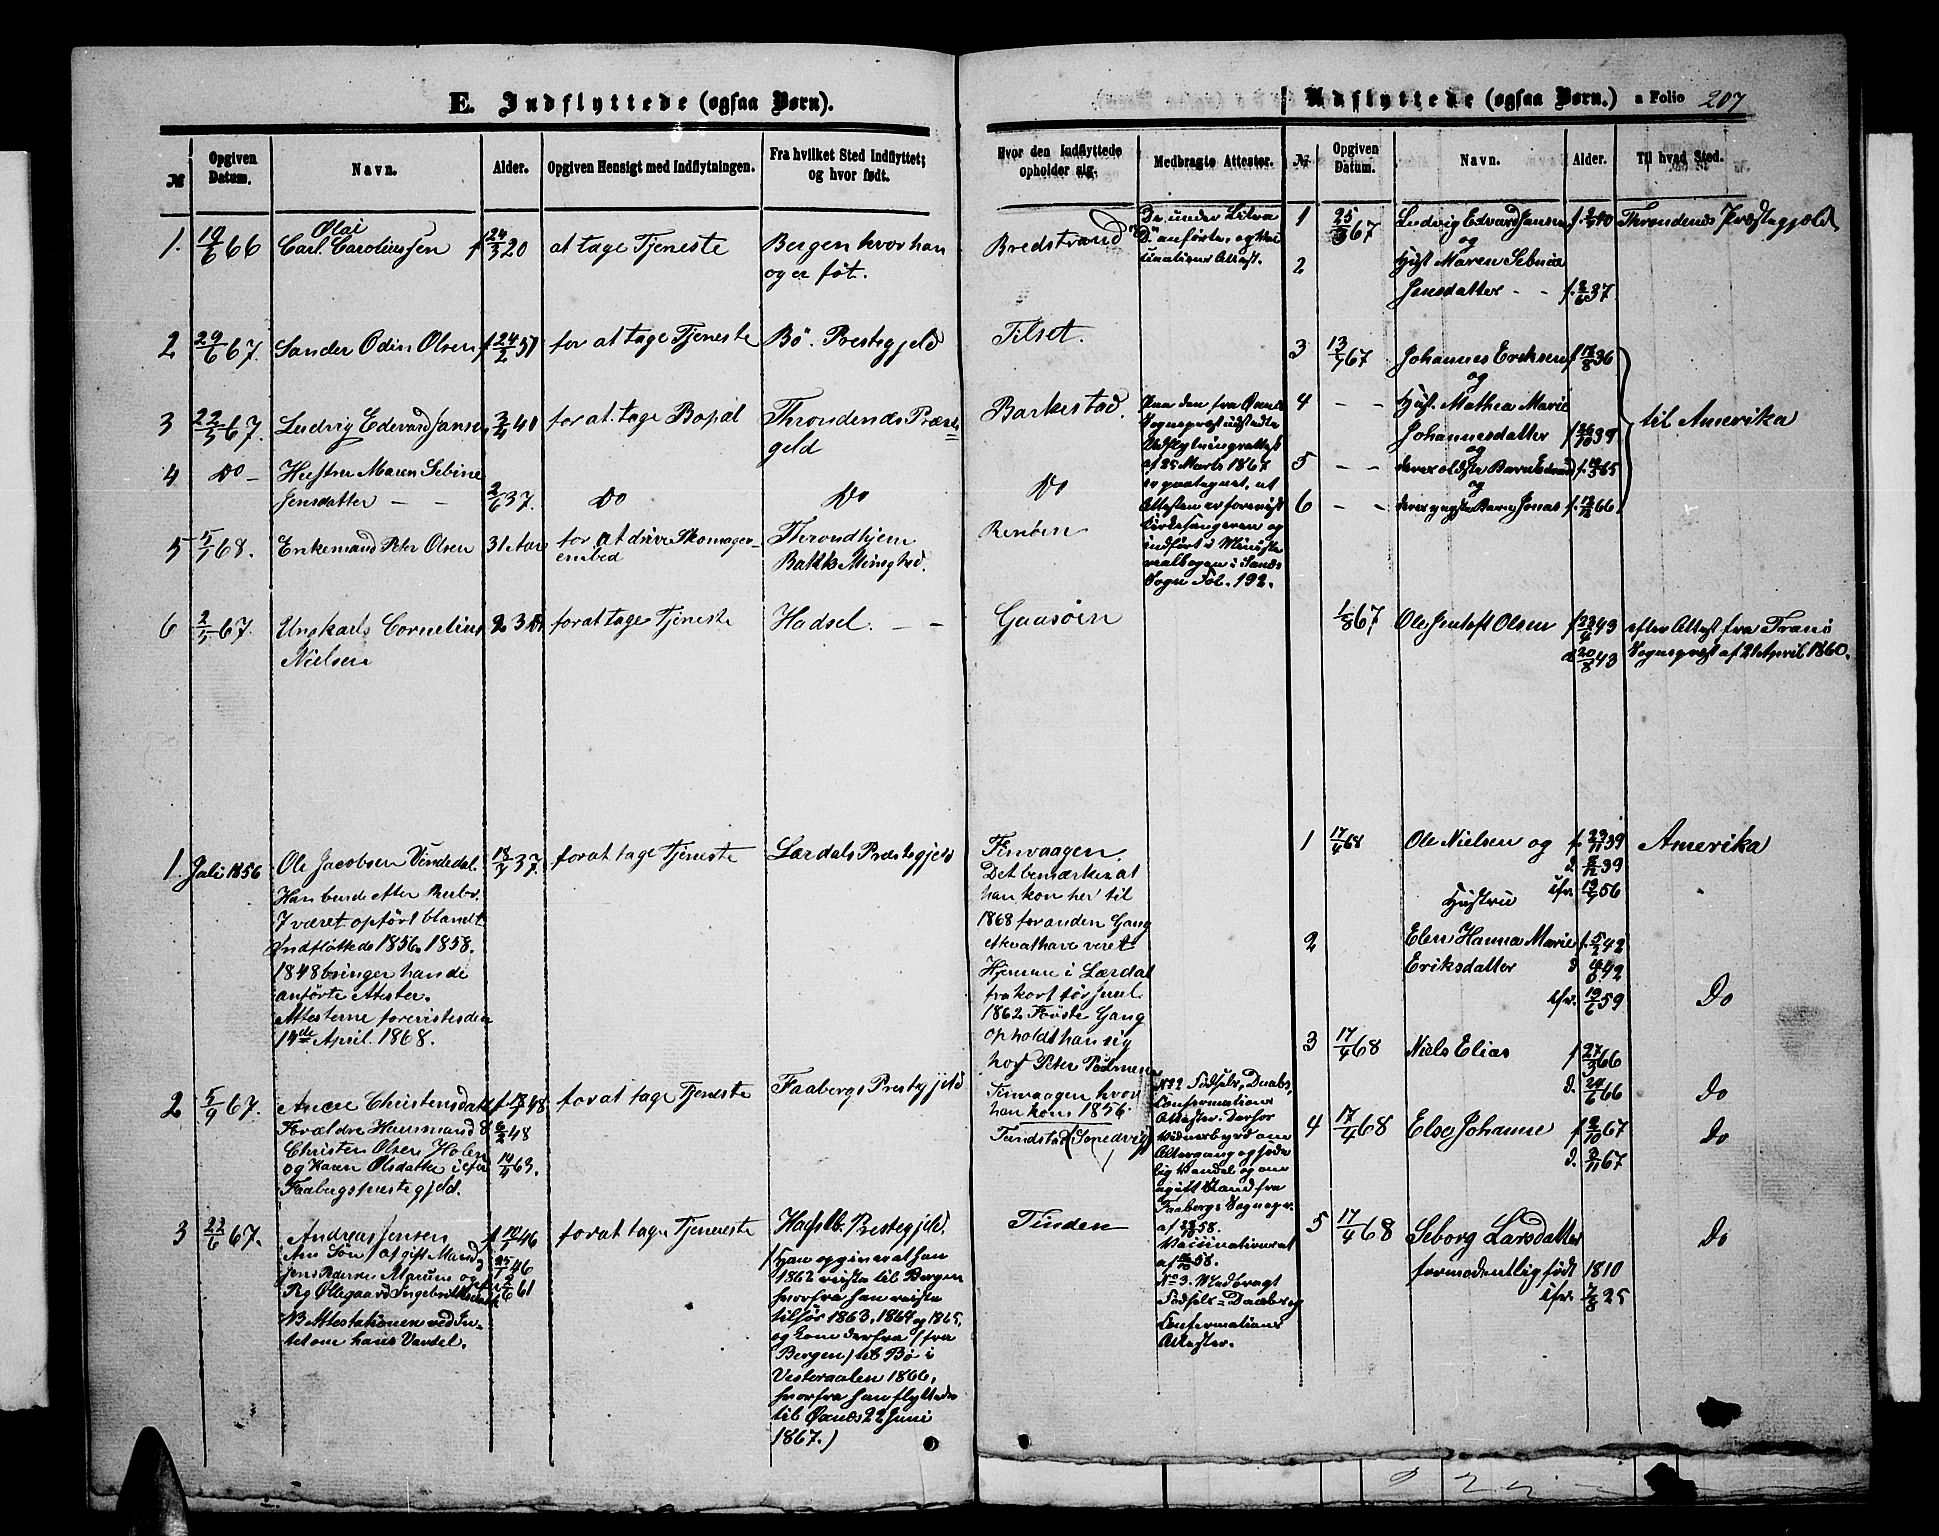 E. Indflyttede (ogsaa Børn).
№ Opgiven Datum. Navn. Alder. Opgiven Hensigt med Indflytningen. Fra hvilket Sted Indflyttet; og hvor født.
1. 19/6 66 Carl Olai Caroliussen f 24/3 20 at tage Tjeneste Bergen hvor han
og er føt.
2 29/6 67. Sander Odin Olsen f 24/2 51 for at tage Tjeneste Bö Prestegjeld
3 22/5 67. Ludvig Edevard Jansen 3/4 40 for at tage Bopæl Throndenes Præste=
geld
4 Do - Hustru Maren Sebine
Jensdatter - - 2/6 37. Do Do
5 5/1 68. Enkemand Peter Olsen 31 Aar for at drive Skomager- Throndhjem
embed Bakke Menighed.
6 2/5 67. Ungkarls Cornelius 23 for at tage Tjeneste Hadsel - -
Nielsen
1. Juli 1856 Ole Jacobsen Vindedal 18/4 37. for at tage Tjeneste Lærdals Præstegjeld
Han burde efter Rubr.
7 været opført blandt
Indfløttede 1856. 1858.
1848 bringer han de
anførte Atester.
Attesterne forevistes den
14de April 1868.
2 5/9 67. Anne Christensdatt f 18/1 48 for at tage Tjeneste Faabergs Prestegjeld
Forældre Huusmand 6/2 48
Christen Olsen Holen
og Karen Olsdatter i 14/4 63.
Faabergs prestegjeld.
3 22/6 67. Andreas Jensen f 10/1 46 for at tage Tjeneste Hafslo Prestegjeld.
Søn af gift Mand 25/1 46
Jens Pedersen og 2/6 61
Pig Ollegaard Ingebrigtsdatt
NB Attestationen ved In-
tet om hans Vandel.
(Han opgiver at han
1862 reiste til Bergen
hvorfra han reiste
tilsøs 1863, 1864 og 1865,
og kom derfra (fra
Bergen) til Bø i
Vesteraalen 1866,
hvorfra han flyttede
til Øxnes 22 Juni
1867.)
Hvor den Indflyttede opholder sig. Medbragte Attester.
Bredstrand 3 u. under Litra
"D" anførte, og Vac
cinations Attest.
Tilset.
Barkestad. Paa den fra Øxnes
Sognepræst udstedte
Udflytningsattest
af 25 Marts 1867
er paategnet, at
Do Attesten er forevist
Renöen Kirkesangeren og
indført i Ministe
rialbogen i Sands
Sogn Fol. 192.
Gaasöen
Finvaagen.
Det bemærkes at
han kom her til
1868 for anden Gang
efter at have veret
Hjemme i Lærdal
fra kort før Juul
1862 Første Gang
opholdt han sig
hos Peter
Finvaagen hvor
han kom 1856.
Tundstad No 2 Fødsels, Daabs,
Confirmations
Attester. Derfor
Vidnesbyrd om
Altergang og sæde
lig Vandel og om
ugift Stand fra
Faabergs Sognepr.
af
Vaccinationsat
af
Tinden No 3. Medbragt
Fødsels= Daabs og
Confirmations
Attester.
Udflyttede (ogsaa Børn.) a Folio 207
№ Opgiven Datum. Navn. Alder. Til hvad Sted.
1 25/3 67 Ludvig Edvard Jansen f. 3/4 40 Throndenes Præstegjeld
og
2 Hust Maren Sebine
Jensdatter - - f. 2/6 37
3 13/4 67 Johannes Eriksen f 12/8 36
og
4 - - Hust. Mathea Marie
Johannesdatter f 26/10 39 til Amerika
og
5 - - deres ældste Barn Edvard f. 19/3 65
og
6 - - deres yngste Barn Jonas f. 12/12 66
1/8 67 Ole Jentoft Olsen f 22/4 43 efter Attest fra Tranö
d 20/8 43 Sognepræst af 21 April 1860.
1 17/4 68 Ole Nielsen og f. 23/11 39 Amerika
d. 8/12 39
Hustru cfr. 13/7 56
2 Elen Hanna Marie f. 5/2 42
Eriksdatter d 4/6 42
cfr. 19/6 59 Do
3 17/4 68 Niels Elias f 27/3 66
d. 24/6 66 Do
4 17/4 68 Else Johanne f 2/10 67 Do
d. 3/11 67
5 17/4 68 Seborg Larsdatter Do
formodentlig født 1810
cfr. 7/8 25